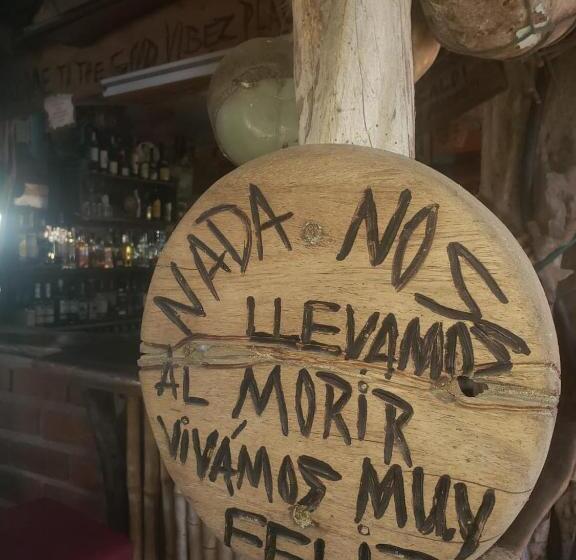 ME TO THE GOOD VIBEZ PLA
NADA NOS
LLEVAMOS
AL MORIR
VIVÁMOS MUY
FELIZ